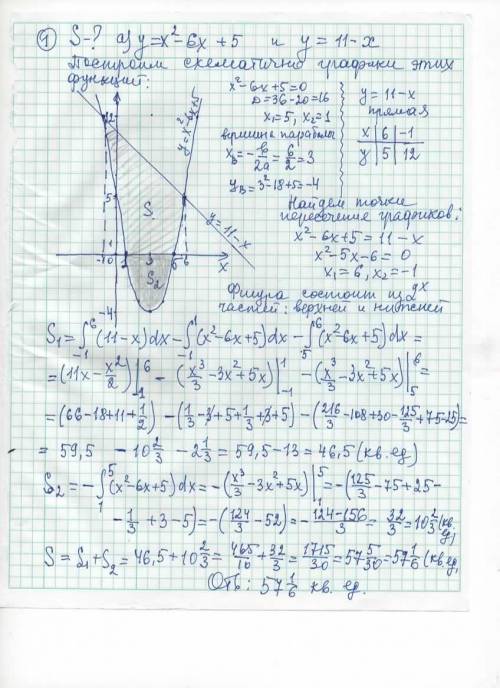 ① S-? а) y=x²-6x+5 и y=11-x
Построим схематично графики этих
функций:
x²-6x+5=0
D=36-20=16
x₁=5, x₂=1
вершина параболы
x_в=-b/2a=6/2=3
y_в=3²-18+5=-4
y=11-x
прямая
x | 6 | -1
y | 5 | 12
Найдем точки
пересечение графиков:
x²-6x+5=11-x
x²-5x-6=0
x₁=6, x₂=-1
Фигура состоит из 2ух
частей: верхней и нижней
12
5
1
-1 0 1 3 5 6 x
-4
S₁
S₂
y=x²-6x+5
y=11-x
S₁=∫₋₁⁶(11-x)dx-∫₋₁¹(x²-6x+5)dx-∫₅⁶(x²-6x+5)dx=
=(11x-x²/2)|₋₁⁶-(x³/3-3x²+5x)|₋₁¹-(x³/3-3x²+5x)|₅⁶=
=(66-18+11+1/2)-(1/3-3+5+1/3+3+5)-(216/3-108+30-125/3+75-25)=
=59,5-10 2/3-2 1/3=59,5-13=46,5(кв.ед)
S₂=-∫₁⁵(x²-6x+5)dx=-(x³/3-3x²+5x)|₁⁵=-(125/3-75+25-
-1/3+3-5)=-(124/3-52)=-(124-156)/3=32/3=10 2/3(кв.ед)
S=S₁+S₂=46,5+10 2/3=465/10+32/3=1715/30=57 5/30=57 1/6(кв.ед,
Отв: 57 1/6 кв. ед.